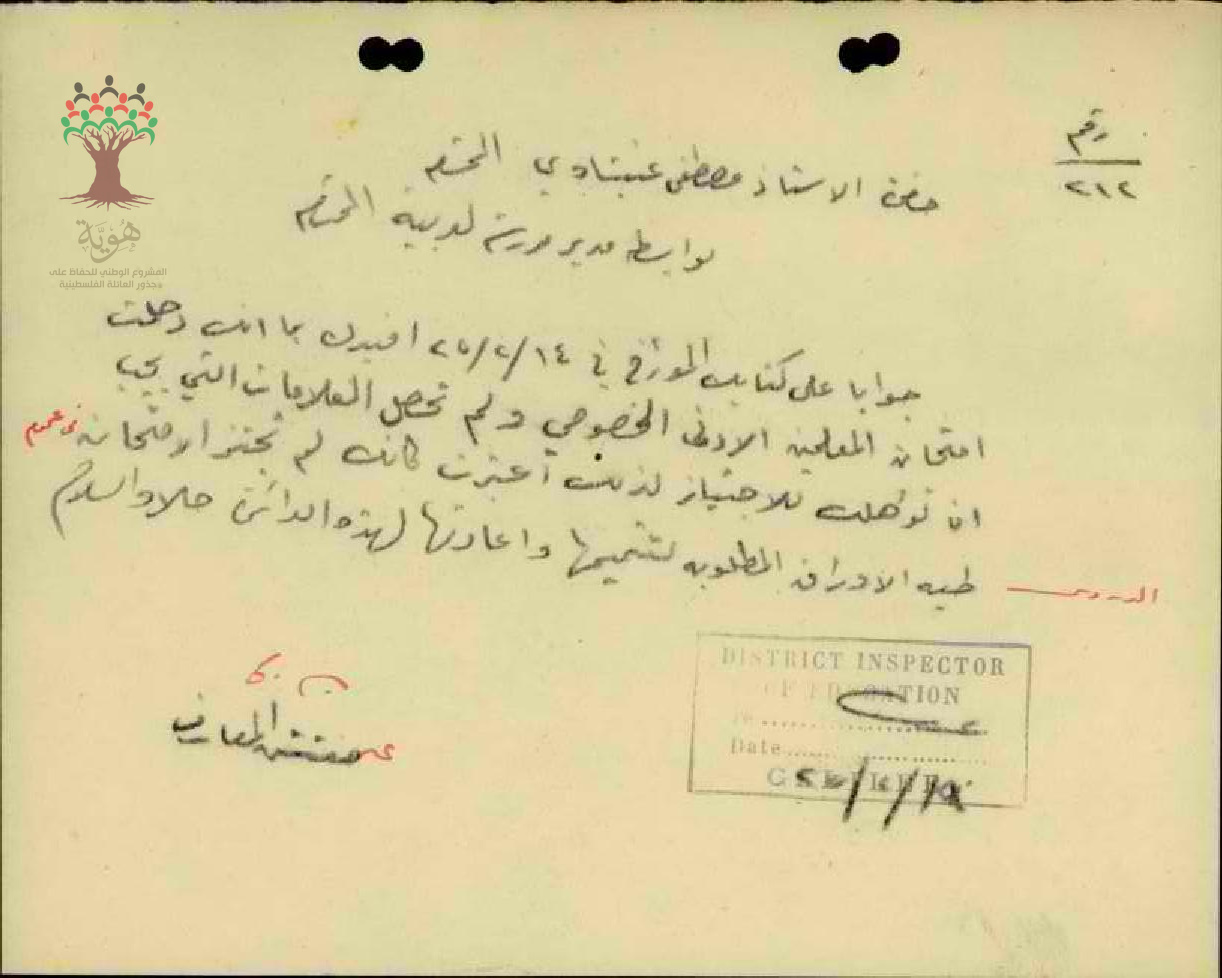 رقم
٢١٢
حضرة الاستاذ مصطفى عنبتاوي المحترم
بواسطة مدير مدرسة المحترم
جوابا على كتابك المؤرخ في ١٤/٢/ افيدك بما انك دخلت
امتحان المعلمين الادنى الخصوصي ولم تحصل العلامات التي يجب
ان تؤهلك للاجتياز لذلك اعتبرت كانك لم تجتز الامتحان
طيه الاوراق المطلوبه لتتميمها واعادتها لهذه الدائرة حالا والسلام
مفتش المعارف
DISTRICT INSPECTOR
OF EDUCATION
No
Date
هُوِيَّة
المشروع الوطني للحفاظ على
جذور العائلة الفلسطينية